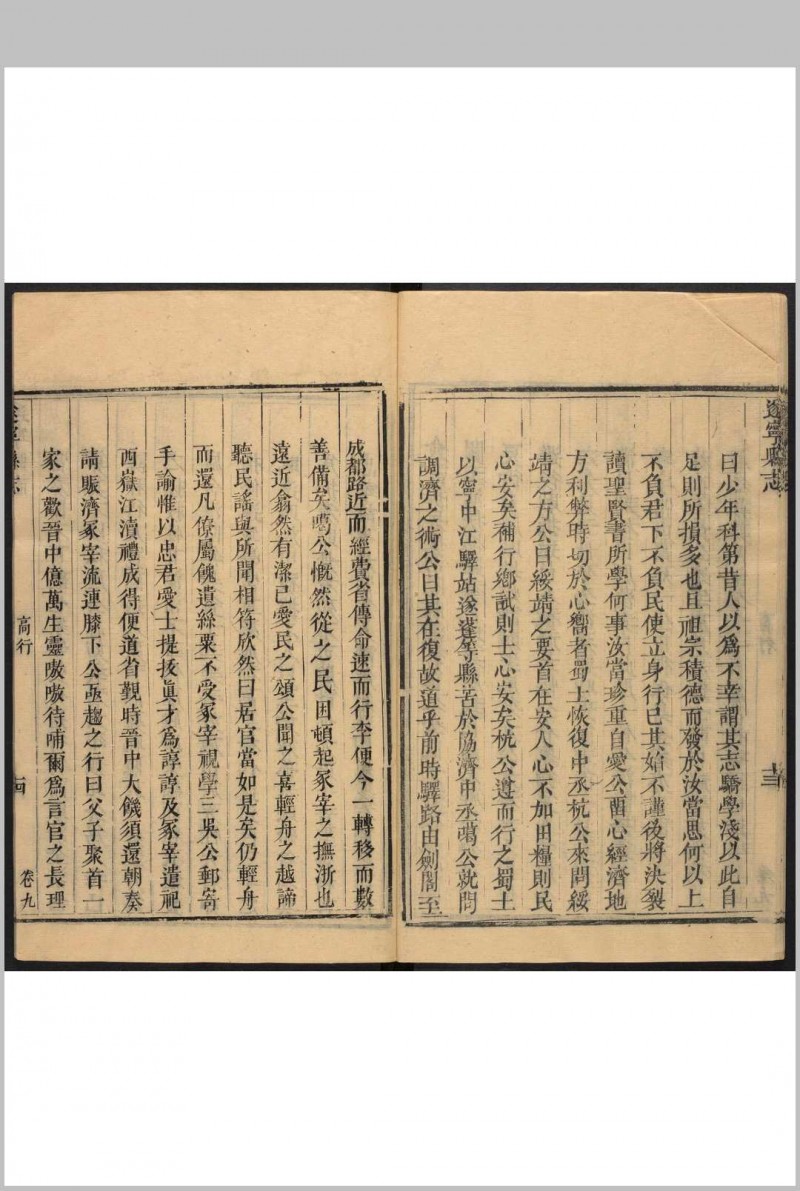 遂寧縣志
曰少年科第昔人以爲不幸謂其志驕學淺以此自
足則所損多也且祖宗積德而發於汝當思何以上
不負君下不負民使立身行已其始不謹後將決裂
讀聖賢書所學何事汝當珍重自愛公畱心經濟地
方利弊時切於心嚮者蜀土恢復中丞杭公來問綏
靖之方公曰綏靖之要首在安人心不加田糧則民
心安矣補行鄉試則士心安矣杭公遵而行之蜀士
以寧中江驛站遂蓬等縣苦於協濟中丞噶公就問
調濟之術公曰其在復故道乎前時驛路由劍閣至
成都路近而經費省傳命速而行李便今一轉移而數
善備矣噶公慨然從之民困頓起冢宰之撫浙也
遠近翕然有潔已愛民之頌公聞之喜輕舟之越諦
聽民謠與所聞相符欣然曰居官當如是矣仍輕舟
而還凡僚屬餽遺絲粟不受冢宰視學三吳公郵寄
手諭惟以忠君愛士提拔眞才爲諄諄及冢宰遣祀
西嶽江瀆禮成得便道省親時晉中大饑須還朝奏
請賑濟冢宰流連膝下公亟趨之行曰父子聚首一
家之歡晉中億萬生靈嗷嗷待哺爾爲言官之長理
高行
卷九